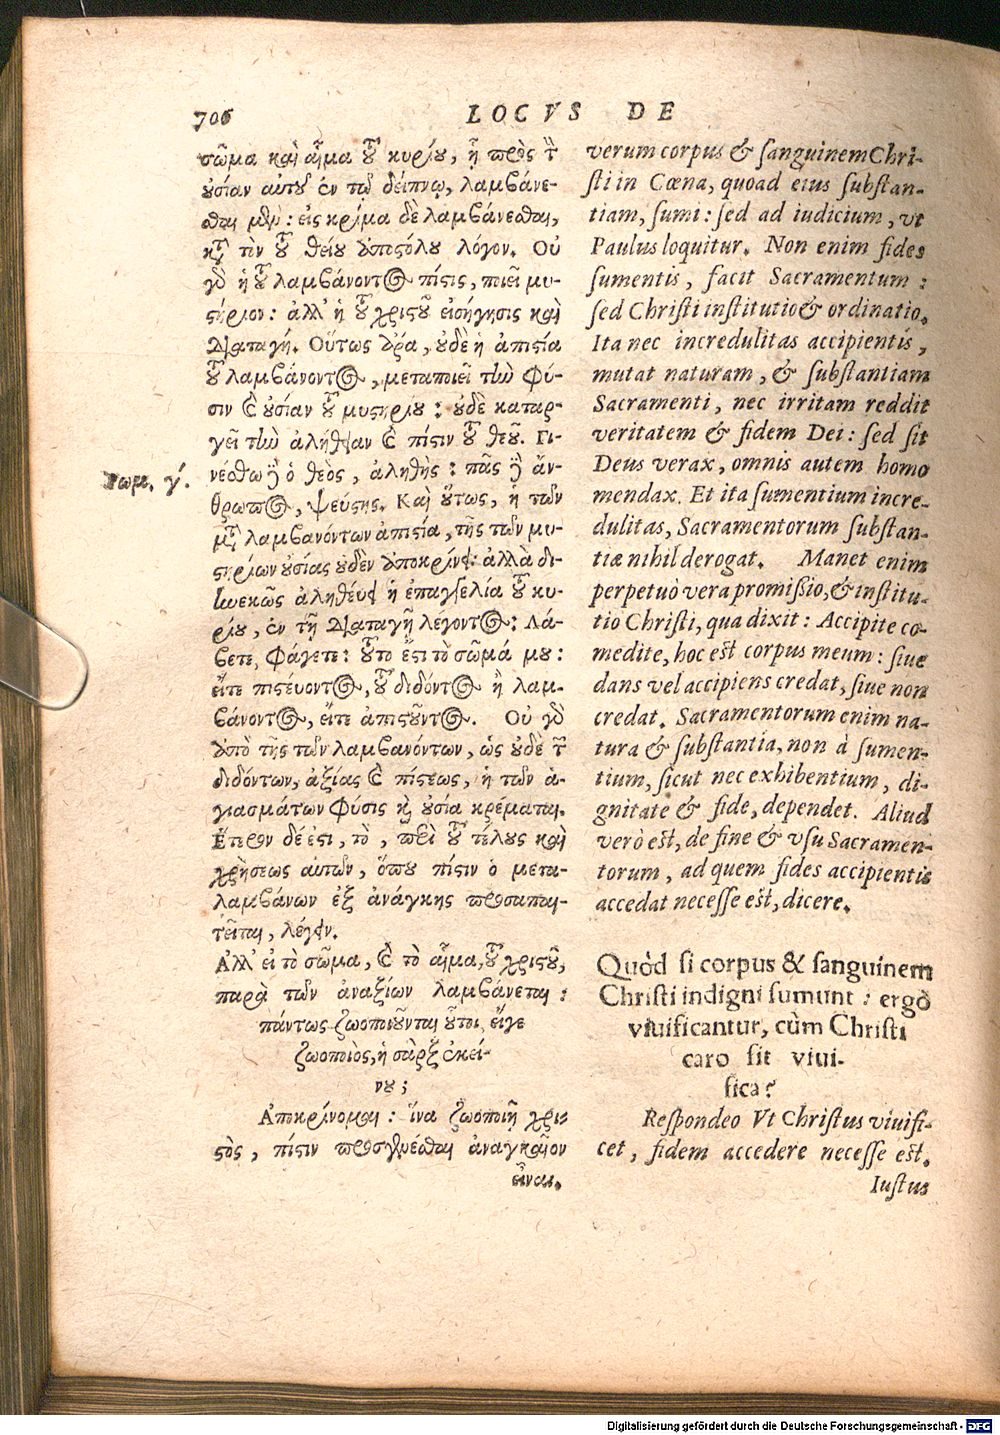 706
LOCVS DE
σῶμα καὶ αἷμα τοῦ κυρίου, ἢ πρὸς τὴν
οὐσίαν αὐτοῦ ἐν τῷ δείπνῳ, λαμβάνε-
σθαι μὲν: εἰς κρίμα δὲ λαμβάνεσθαι,
κατὰ τὸν τοῦ θείου ἀποστόλου λόγον. Οὐ
γὰρ ἡ τοῦ λαμβάνοντος πίστις, ποιεῖ μυ-
στήριον: ἀλλ' ἡ τοῦ χριστοῦ εἰσήγησις καὶ
διαταγή. Οὕτως ἄρα, οὐδὲ ἡ ἀπιστία
τοῦ λαμβάνοντος, μεταποιεῖ τὴν φύ-
σιν καὶ οὐσίαν τοῦ μυστηρίου: οὐδὲ καταρ-
γεῖ τὴν ἀλήθειαν καὶ πίστιν τοῦ θεοῦ. Γι-
νέσθω γὰρ ὁ θεὸς, ἀληθὴς: πᾶς δὲ ἄν-
Ρωμ. γ΄.
θρωπος, ψεύστης. Καὶ οὕτως, ἡ τῶν
μεταλαμβανόντων ἀπιστία, τῆς τῶν μυ-
στηρίων οὐσίας οὐδὲν ἀποκρίνει: ἀλλὰ δι-
ηνεκῶς ἀληθεύει ἡ ἐπαγγελία τοῦ κυ-
ρίου, ἐν τῇ διαταγῇ λέγοντος: Λά-
βετε, φάγετε: τοῦτο ἔστι τὸ σῶμά μου:
εἴτε πιστεύοντος, τοῦ διδόντος ἢ λαμ-
βάνοντος, εἴτε ἀπιστοῦντος. Οὐ γὰρ
ἀπὸ τῆς τῶν λαμβανόντων, ὡς οὐδὲ τῶν
διδόντων, ἀξίας καὶ πίστεως, ἡ τῶν ἁ-
γιασμάτων φύσις καὶ οὐσία κρέμαται.
Ἕτερον δέ ἐστι, τὸ, περὶ τοῦ τέλους καὶ
χρήσεως αὐτῶν, ὅπου πίστιν ὁ μετα-
λαμβάνων ἐξ ἀνάγκης προσαπαι-
τεῖται, λέγειν.
Ἀλλ' εἰ τὸ σῶμα, καὶ τὸ αἷμα, τοῦ χριστοῦ,
παρὰ τῶν ἀναξίων λαμβάνεται:
πάντως ζωοποιοῦνται οὗτοι, εἴγε
ζωοποιὸς, ἡ σὰρξ ἐκεί-
νου;
Ἀποκρίνομαι: ἵνα ζωοποιῇ χρι-
στὸς, πίστιν προσγενέσθαι ἀναγκαῖον
εἶναι.
verum corpus & sanguinem Chri-
sti in Cœna, quoad eius substan-
tiam, sumi: sed ad iudicium, vt
Paulus loquitur. Non enim fides
sumentis, facit Sacramentum:
sed Christi institutio & ordinatio.
Ita nec incredulitas accipientis,
mutat naturam, & substantiam
Sacramenti, nec irritam reddit
veritatem & fidem Dei: sed sit
Deus verax, omnis autem homo
mendax. Et ita sumentium incre-
dulitas, Sacramentorum substan-
tiæ nihil derogat. Manet enim
perpetuò vera promißio, & institu-
tio Christi, qua dixit: Accipite co-
medite, hoc est corpus meum: siue
dans vel accipiens credat, siue non
credat. Sacramentorum enim na-
tura & substantia, non à sumen-
tium, sicut nec exhibentium, di-
gnitate & fide, dependet. Aliud
verò est, de fine & vsu Sacramen-
torum, ad quem fides accipientis
accedat necesse est, dicere.
Quòd si corpus & sanguinem
Christi indigni sumunt: ergò
viuificantur, cùm Christi
caro sit viui-
fica?
Respondeo Vt Christus viuifi-
cet, fidem accedere necesse est.
Iustus
Digitalisierung gefördert durch die Deutsche Forschungsgemeinschaft - DFG